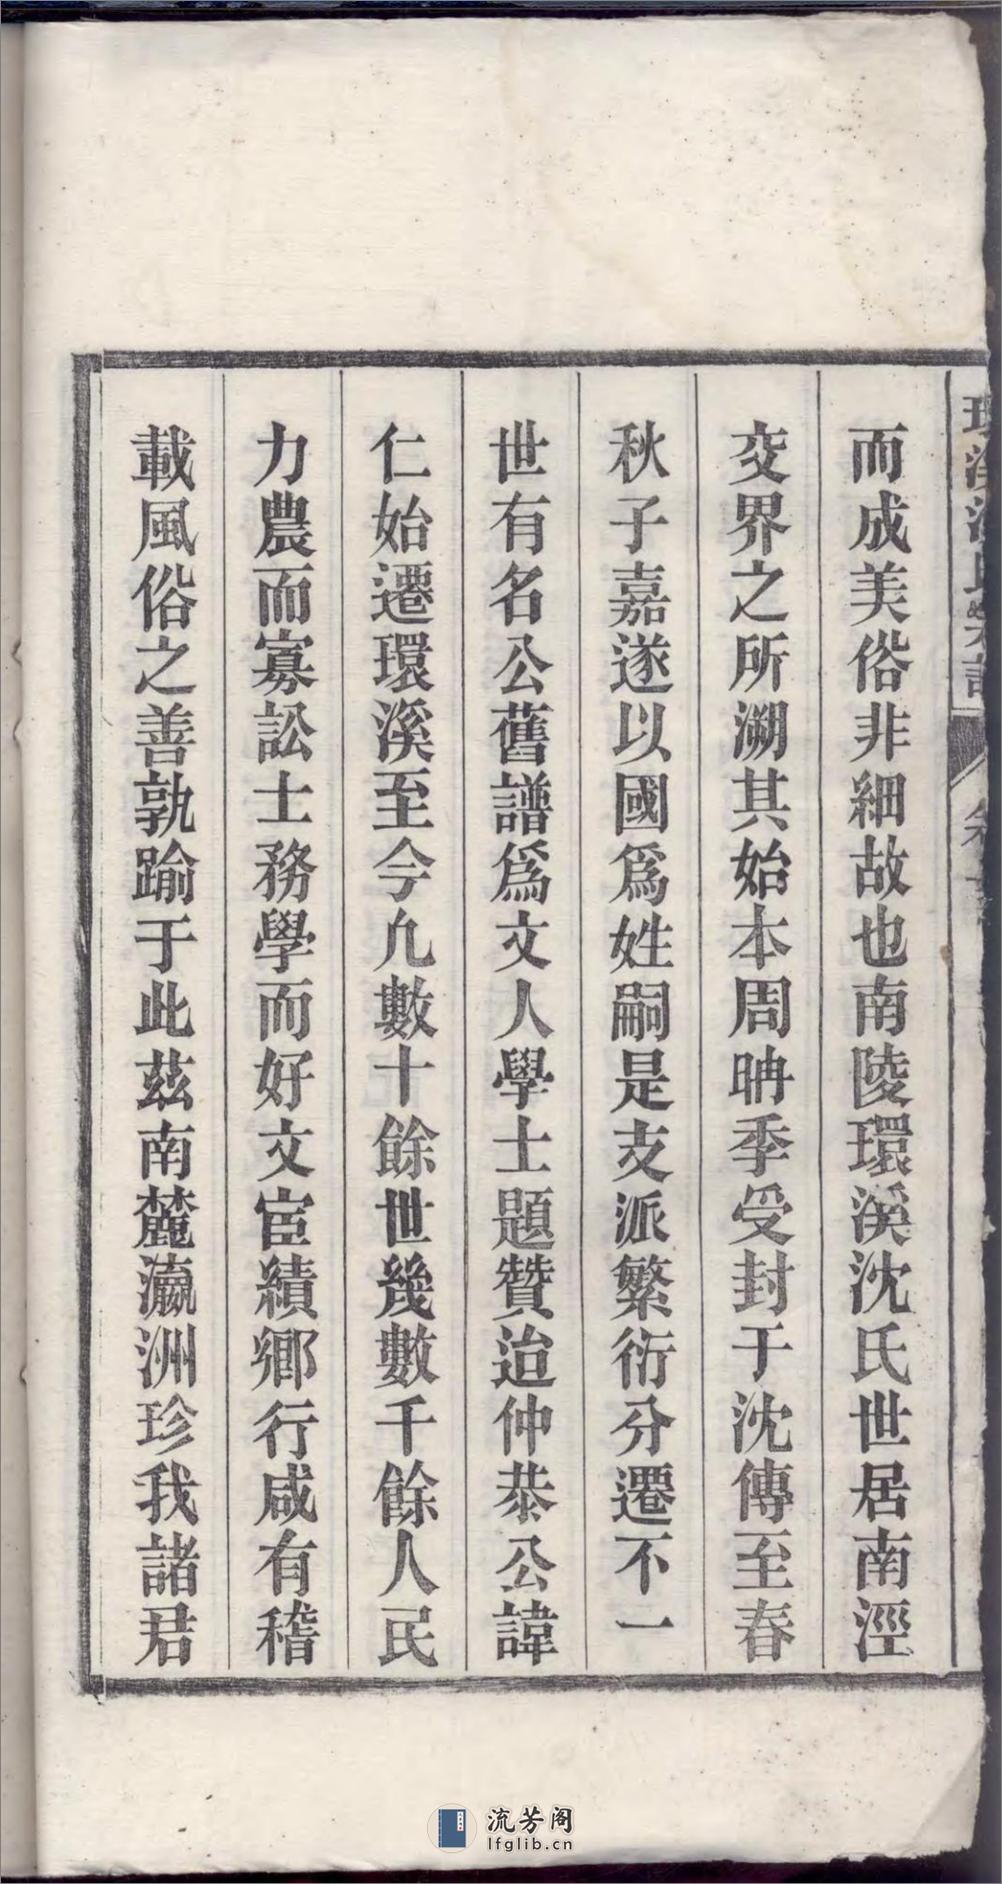 環溪沈氏宗譜
而成美俗非細故也南陵環溪沈氏世居南涇
交界之所溯其始本周聃季受封于沈傳至春
秋子嘉遂以國爲姓嗣是支派繁衍分遷不一
世有名公舊譜爲文人學士題贊迨仲恭公諱
仁始遷環溪至今凢數十餘世幾數千餘人民
力農而寡訟士務學而好文宦績鄉行咸有稽
載風俗之善孰踰于此茲南麓瀛洲珍我諸君
流芳阁
lfglib.cn